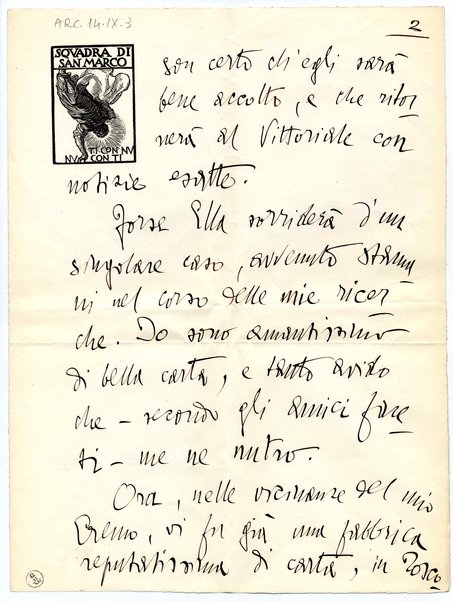 ARC. 14.IX.3
2
SQVADRA DI
SAN MARCO
TI CON NV
NV CON TI
son certo ch'egli sarà
bene accolto, e che ritor
nerà al Vittoriale con
notizie esatte.
Forse Ella sorriderà d'un
singolare caso, avvenuto stama
ni nel corso delle mie ricer
che. Io sono amantissimo
di bella carta, e tanto avido
che – secondo gli amici face
ti – me ne nutro.
Ora, nelle vicinanze del mio
Eremo, vi fu già una fabbrica
reputatissima di carta, in Tosco